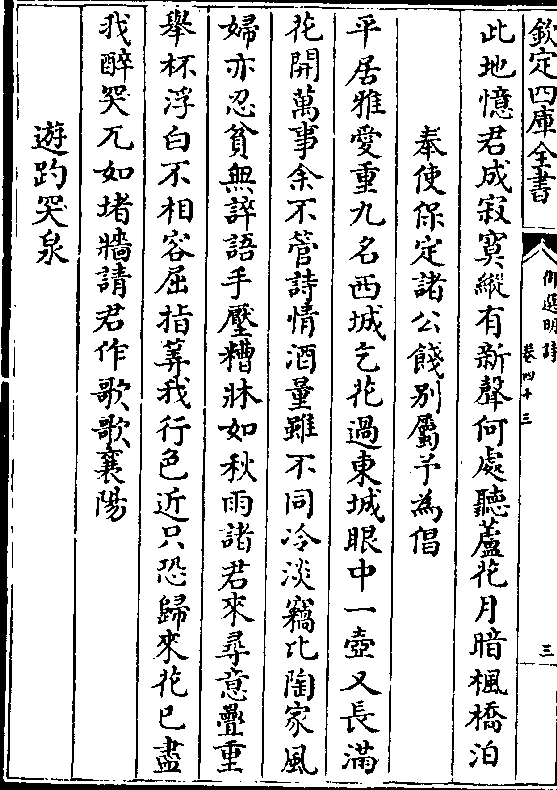 欽定四庫全書
御選明詩
卷四十三
三
此地憶君成寂寞縱有新聲何處聽蘆花月暗楓橋泊
奉使保定諸公餞别屬予為倡
平居雅愛重九名西城乞花過東城眼中一壺又長滿
花開萬事余不管詩情酒量雖不同冷淡竊比陶家風
婦亦忍貧無誶語手壓糟牀如秋雨諸君來尋意疊重
舉杯浮白不相容屈指筭我行色近只恐歸來花已盡
我醉哭兀如堵牆請君作歌歌襄陽
遊趵哭泉